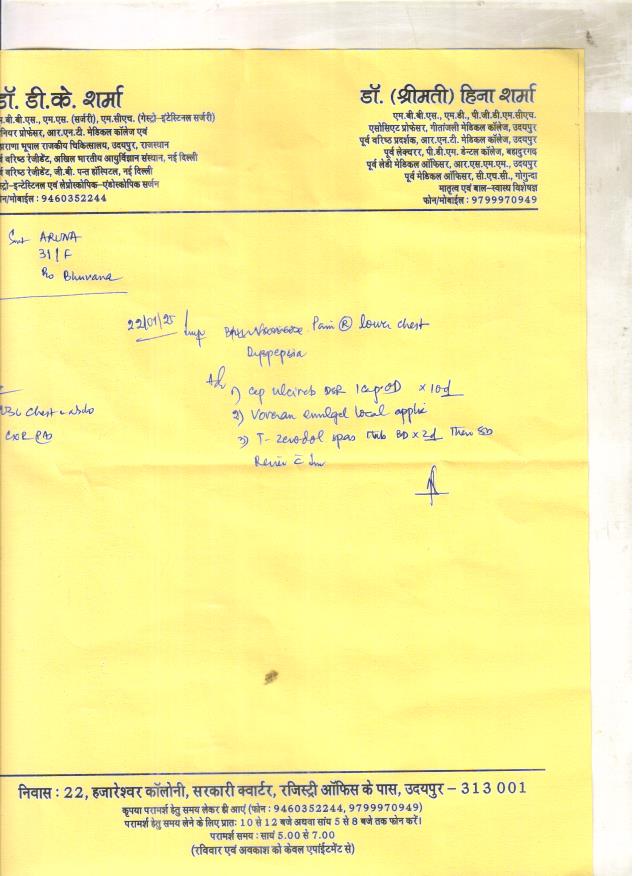 डॉ. डी.के. शर्मा
म.बी.बी.एस., एम.एस. (सर्जरी), एम.सीएच. (गेस्ट्रो-इंटेस्टिनल सर्जरी)
नियर प्रोफेसर, आर.एन.टी. मेडिकल कॉलेज एवं
हाराणा भूपाल राजकीय चिकित्सालय, उदयपुर, राजस्थान
वरिष्ठ रेजीडेंट, अखिल भारतीय आयुर्विज्ञान संस्थान, नई दिल्ली
वरिष्ठ रेजीडेंट, जी.बी. पन्त हॉस्पिटल, नई दिल्ली
स्ट्रो-इन्टेस्टिनल एवं लेप्रोस्कोपिक-एंडोस्कोपिक सर्जन
न/मोबाईल : 9460352244
डॉ. (श्रीमती) हिना शर्मा
एम.बी.बी.एस., एम.डी., पी.जी.डी.एम.सीएच.
एसोसिएट प्रोफेसर, गीतांजली मेडिकल कॉलेज, उदयपुर
पूर्व वरिष्ठ प्रदर्शक, आर.एन.टी. मेडिकल कॉलेज, उदयपुर
पूर्व लेक्चरर, पी.डी.एम. डेन्टल कॉलेज, बहादुरगढ़
पूर्व लेडी मेडिकल ऑफिसर, आर.एस.एम.एम., उदयपुर
पूर्व मेडिकल ऑफिसर, सी.एच.सी., गोगुन्दा
मातृत्व एवं बाल-स्वास्थ्य विशेषज्ञ
फोन/मोबाईल : 9799970949
Smt ARUNA
31/F
R/o Bhuvana
22/01/25 Imp Pain Ⓡ lower chest
Dyspepsia
Adv
1) Cap DSR 1cap OD x 10d
2) Voveran emulgel local applic
3) T- Zerodol spas 1tab BD x 2d Then SD
Review c̄
USG Chest + abdo
CXR PA
निवास : 22, हजारेश्वर कॉलोनी, सरकारी क्वार्टर, रजिस्ट्री ऑफिस के पास, उदयपुर – 313 001
कृपया परामर्श हेतु समय लेकर ही आएं (फोन : 9460352244, 9799970949)
परामर्श हेतु समय लेने के लिए प्रातः 10 से 12 बजे अथवा सांय 5 से 8 बजे तक फोन करें।
परामर्श समय : सायं 5.00 से 7.00
(रविवार एवं अवकाश को केवल एपांईटमेंट से)